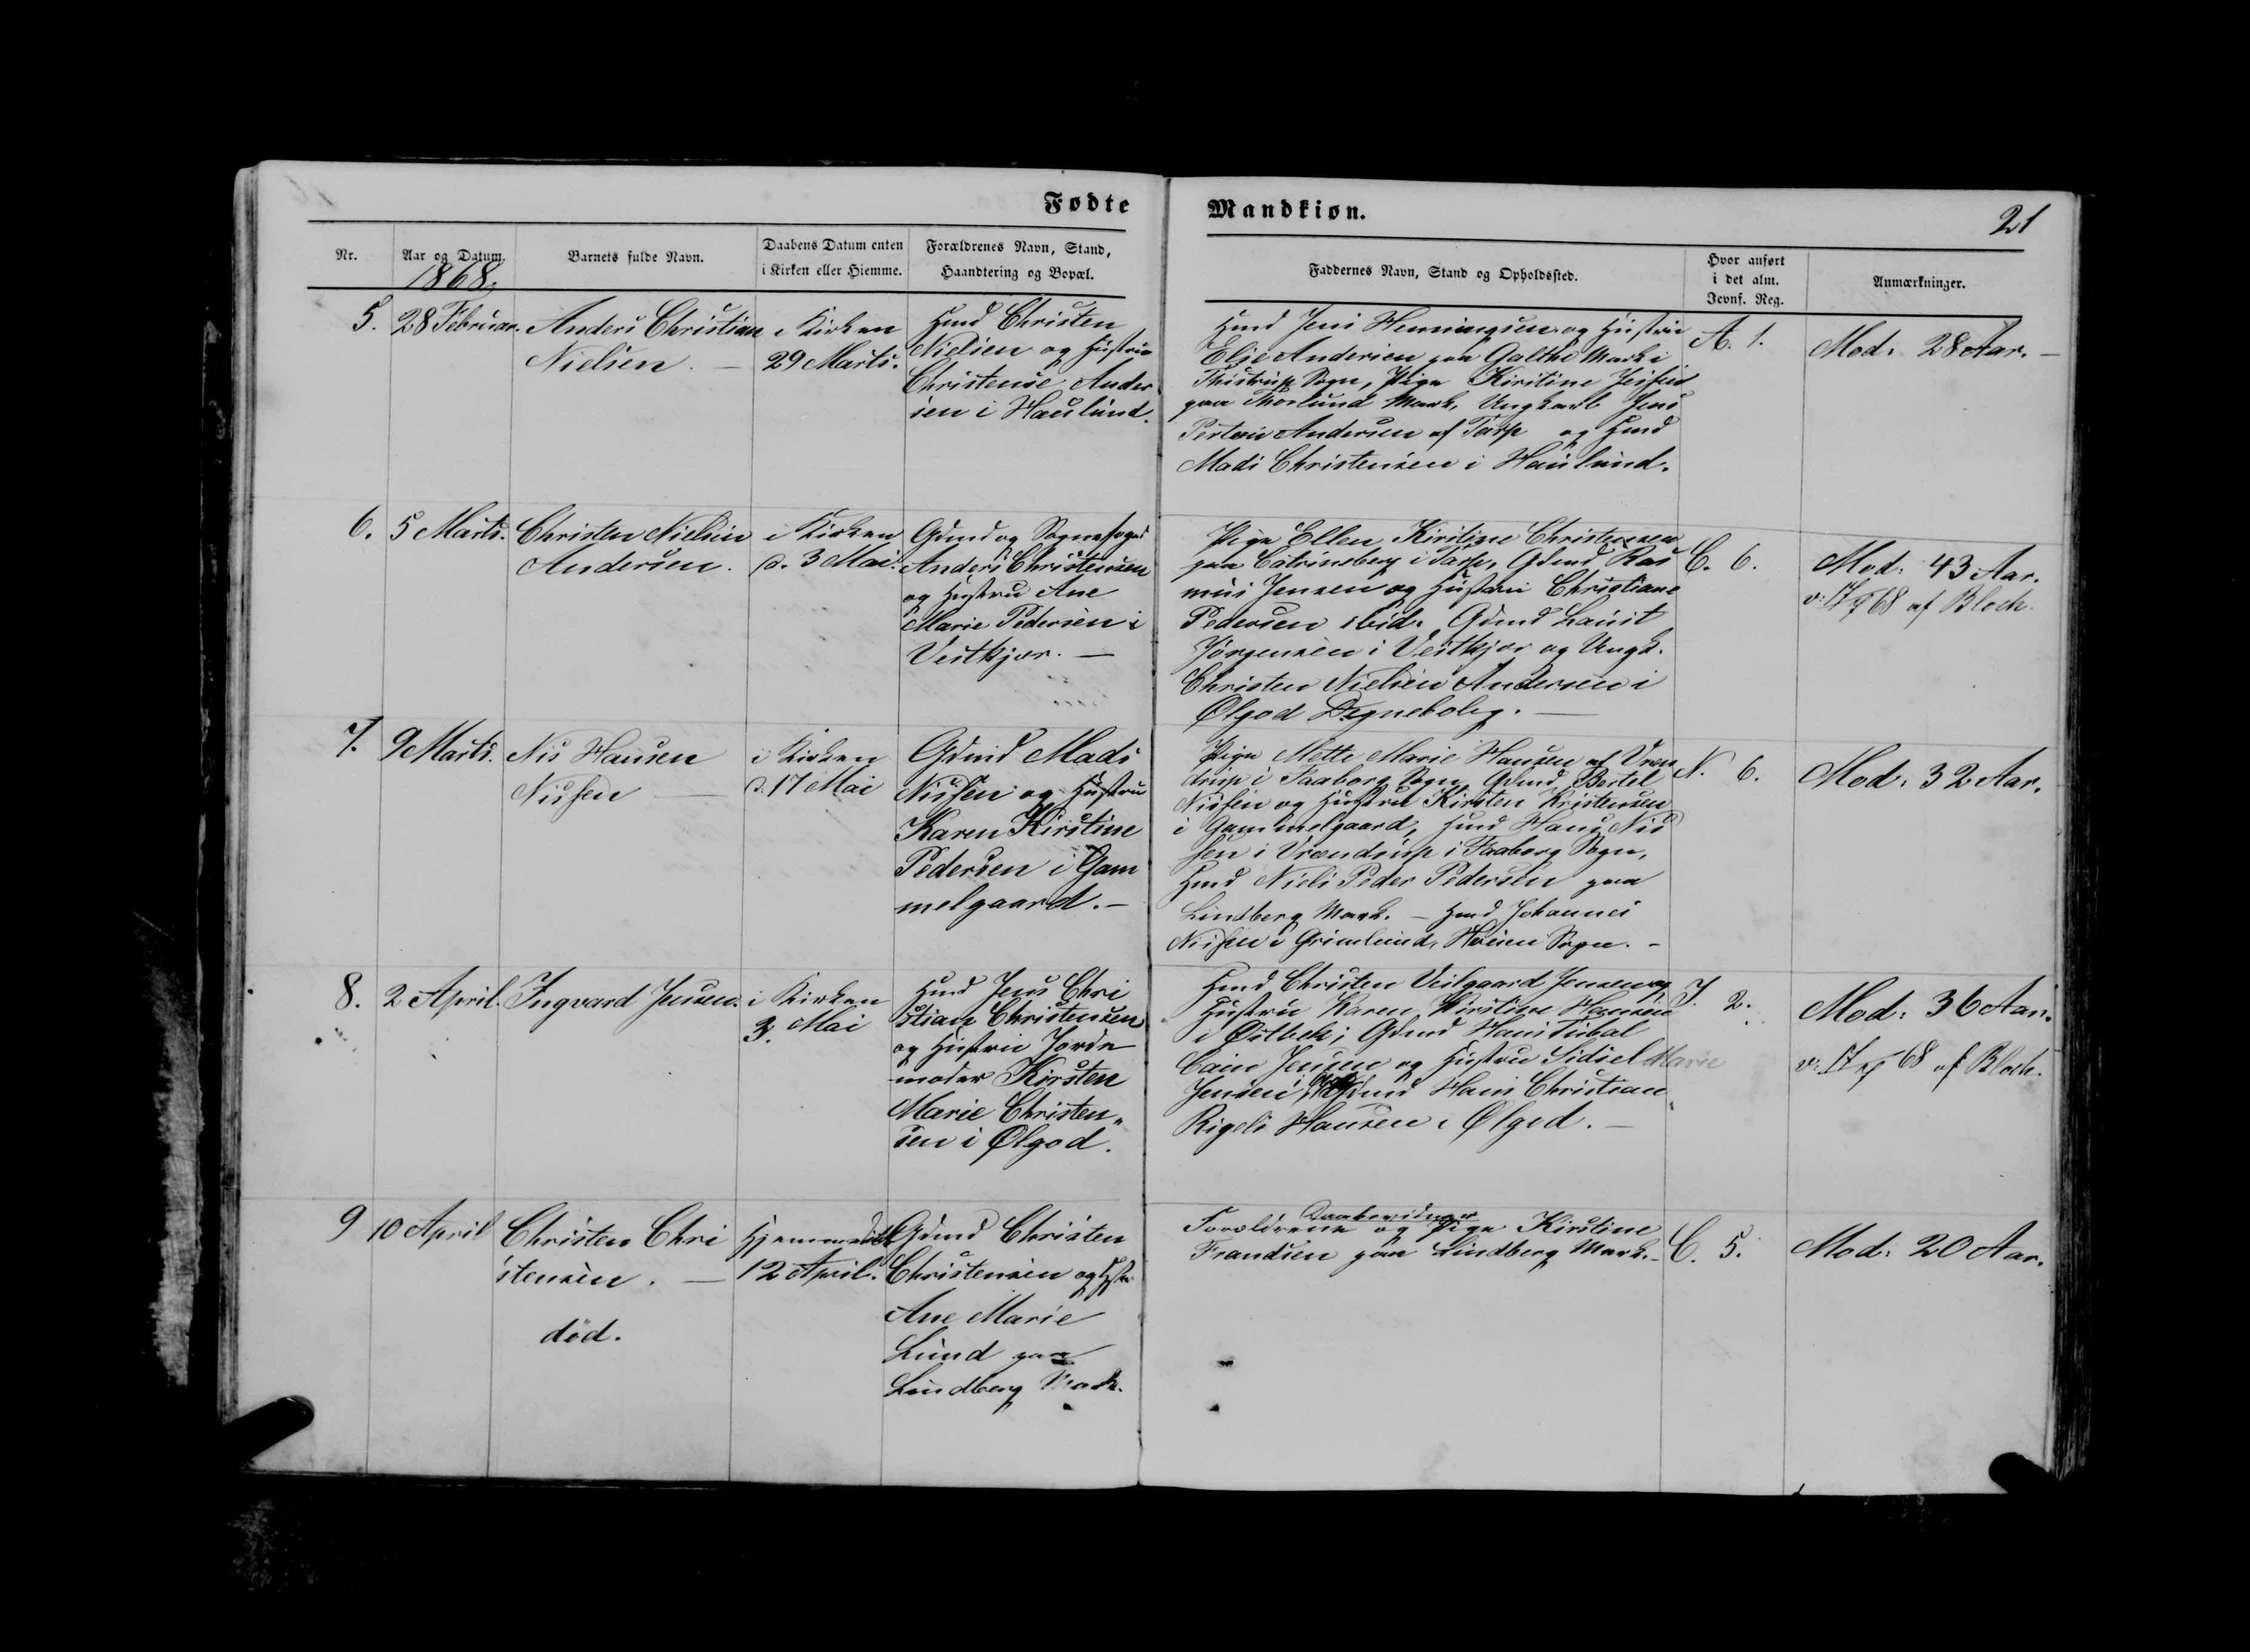 Fødte
Mandkiøn.
21
Nr.
Aar og Datum.
1868.
Barnets fulde Navn.
Daabens Datum enten
i Kirken eller Hiemme.
Forældrenes Navn, Stand,
Haandtering og Bopæl.
Faddernes Navn, Stand og Opholdssted.
Hvor anført
i det alm.
Jevnf. Reg.
Anmærkninger.
5.
28 Februar.
Anders Christian
Nielsen. —
i Kirken
29 Marts.
Hmd Christen
Nielsen og Hustru
Christense Ander
sen i Haulund.
Hmd Jens Henningsen og Hustru
Else Andersen paa Galthe Mark i
Thistrup Sogn, Pige Kirstine Jessen
paa Thorlund Mark, Ungkarl Jens
Andersen af Tarp og Hmd
Mads Christensen i Haulund.
A. 1.
Mod: 28 Aar. —
6.
5 Marts.
Christen Nielsen
Andersen.
i Kirken
d. 3 Mai.
Gdmd og Sognefoged
Anders Christensen
og Hustru Ane
Marie Pedersen i
Vestkjær. —
Pige Ellen Kirstine Christensen
paa Catrinsberg i Tarp, Gdmd Ras
mus Jensen og Hustru Christiane
Pedersen ibid. Gdmd Laust
Jørgensen i Vestkjær og Ungk.
Christen Nielsen Andersen i
Ølgod Degnebolig. —
C. 6.
Mod: 43 Aar.
v: 68 af Bloch.
7.
9 Marts.
Nis Hansen
Nissen —
i Kirken
d. 17 Mai
Gdmd Mads
Nissen og Hustru
Karen Kirstine
Pedersen i Gam
melgaard. —
Pige Mette Marie Hansen af Vræn
drup i Faaborg Sogn, Gdmd Bertel
Nissen og Hustru Kirsten Kristensen
i Gammelgaard, Hmd Hans Nis
sen i Vrændrup i Faaborg Sogn,
Hmd Niels Peder Pedersen paa
Lindberg Mark. — Hmd Johannes
Nissen i Grimlund, Sogn. —
N. 6.
Mod: 32 Aar.
8.
2 April.
Ingvard Jensen.
i Kirken
3. Mai
Hmd Jens Chri
stian Christensen
og Hustru Jorde
moder Kirsten
Marie Christen„
sen i Ølgod.
Hmd Christen Veilgaard Jensen og
Hustru Karen Kirstine Hansen
i Østbek; Gdmd Hans Tubal
Cain Jensen og Hustru Sidsel Marie
Jensen, Gdmd Hans Christian
Rigels Hansen i Ølgod. —
I. 2.
Mod: 36 Aar.
v: 68 af Bloch.
9
10 April
Christen Chri
stensen. —
død.
Hjemmedøbt
12 April.
Gdmd Christen
Christensen og Hstr
Ane Marie
Lund paa
Lindberg Mark.
Daabsvidner
Forældrene og Pige Kirstine
Frandsen paa Lindberg Mark. —
C. 5.
Mod: 20 Aar.